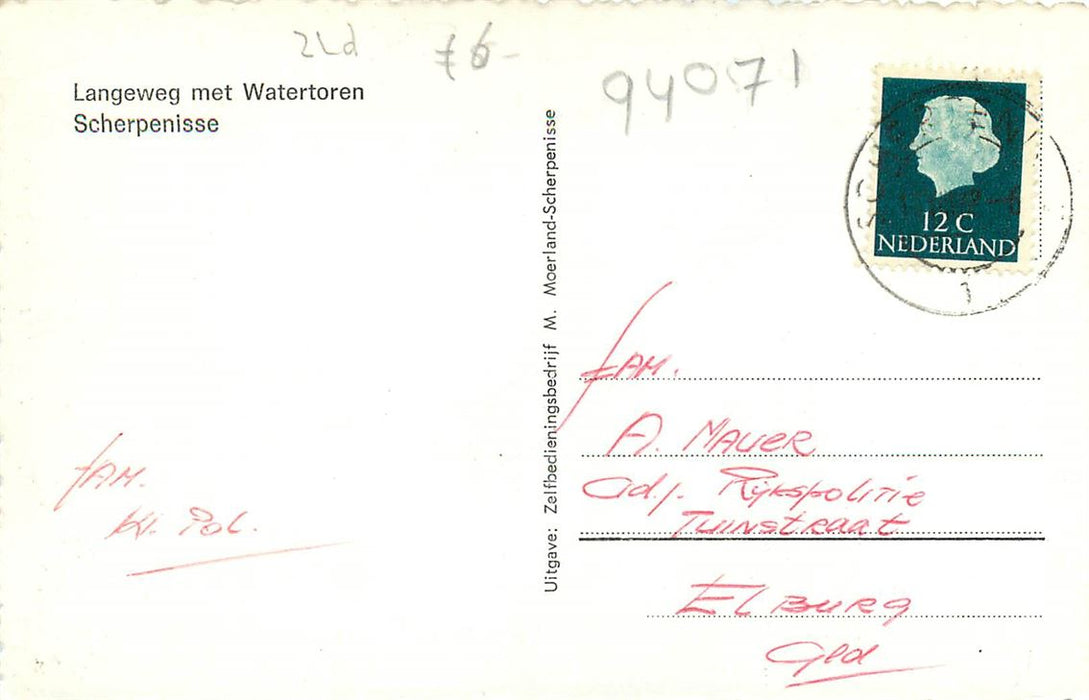 ZLd
f 6-
94071
Langeweg met Watertoren
Scherpenisse
12 C
NEDERLAND
1
Uitgave: Zelfbedieningsbedrijf M. Moerland-Scherpenisse
FAM.
A. MAUER
Adj. Rijkspolitie
TUINSTRAAT
ELBURG
Gld
FAM.
Kl. Pol.